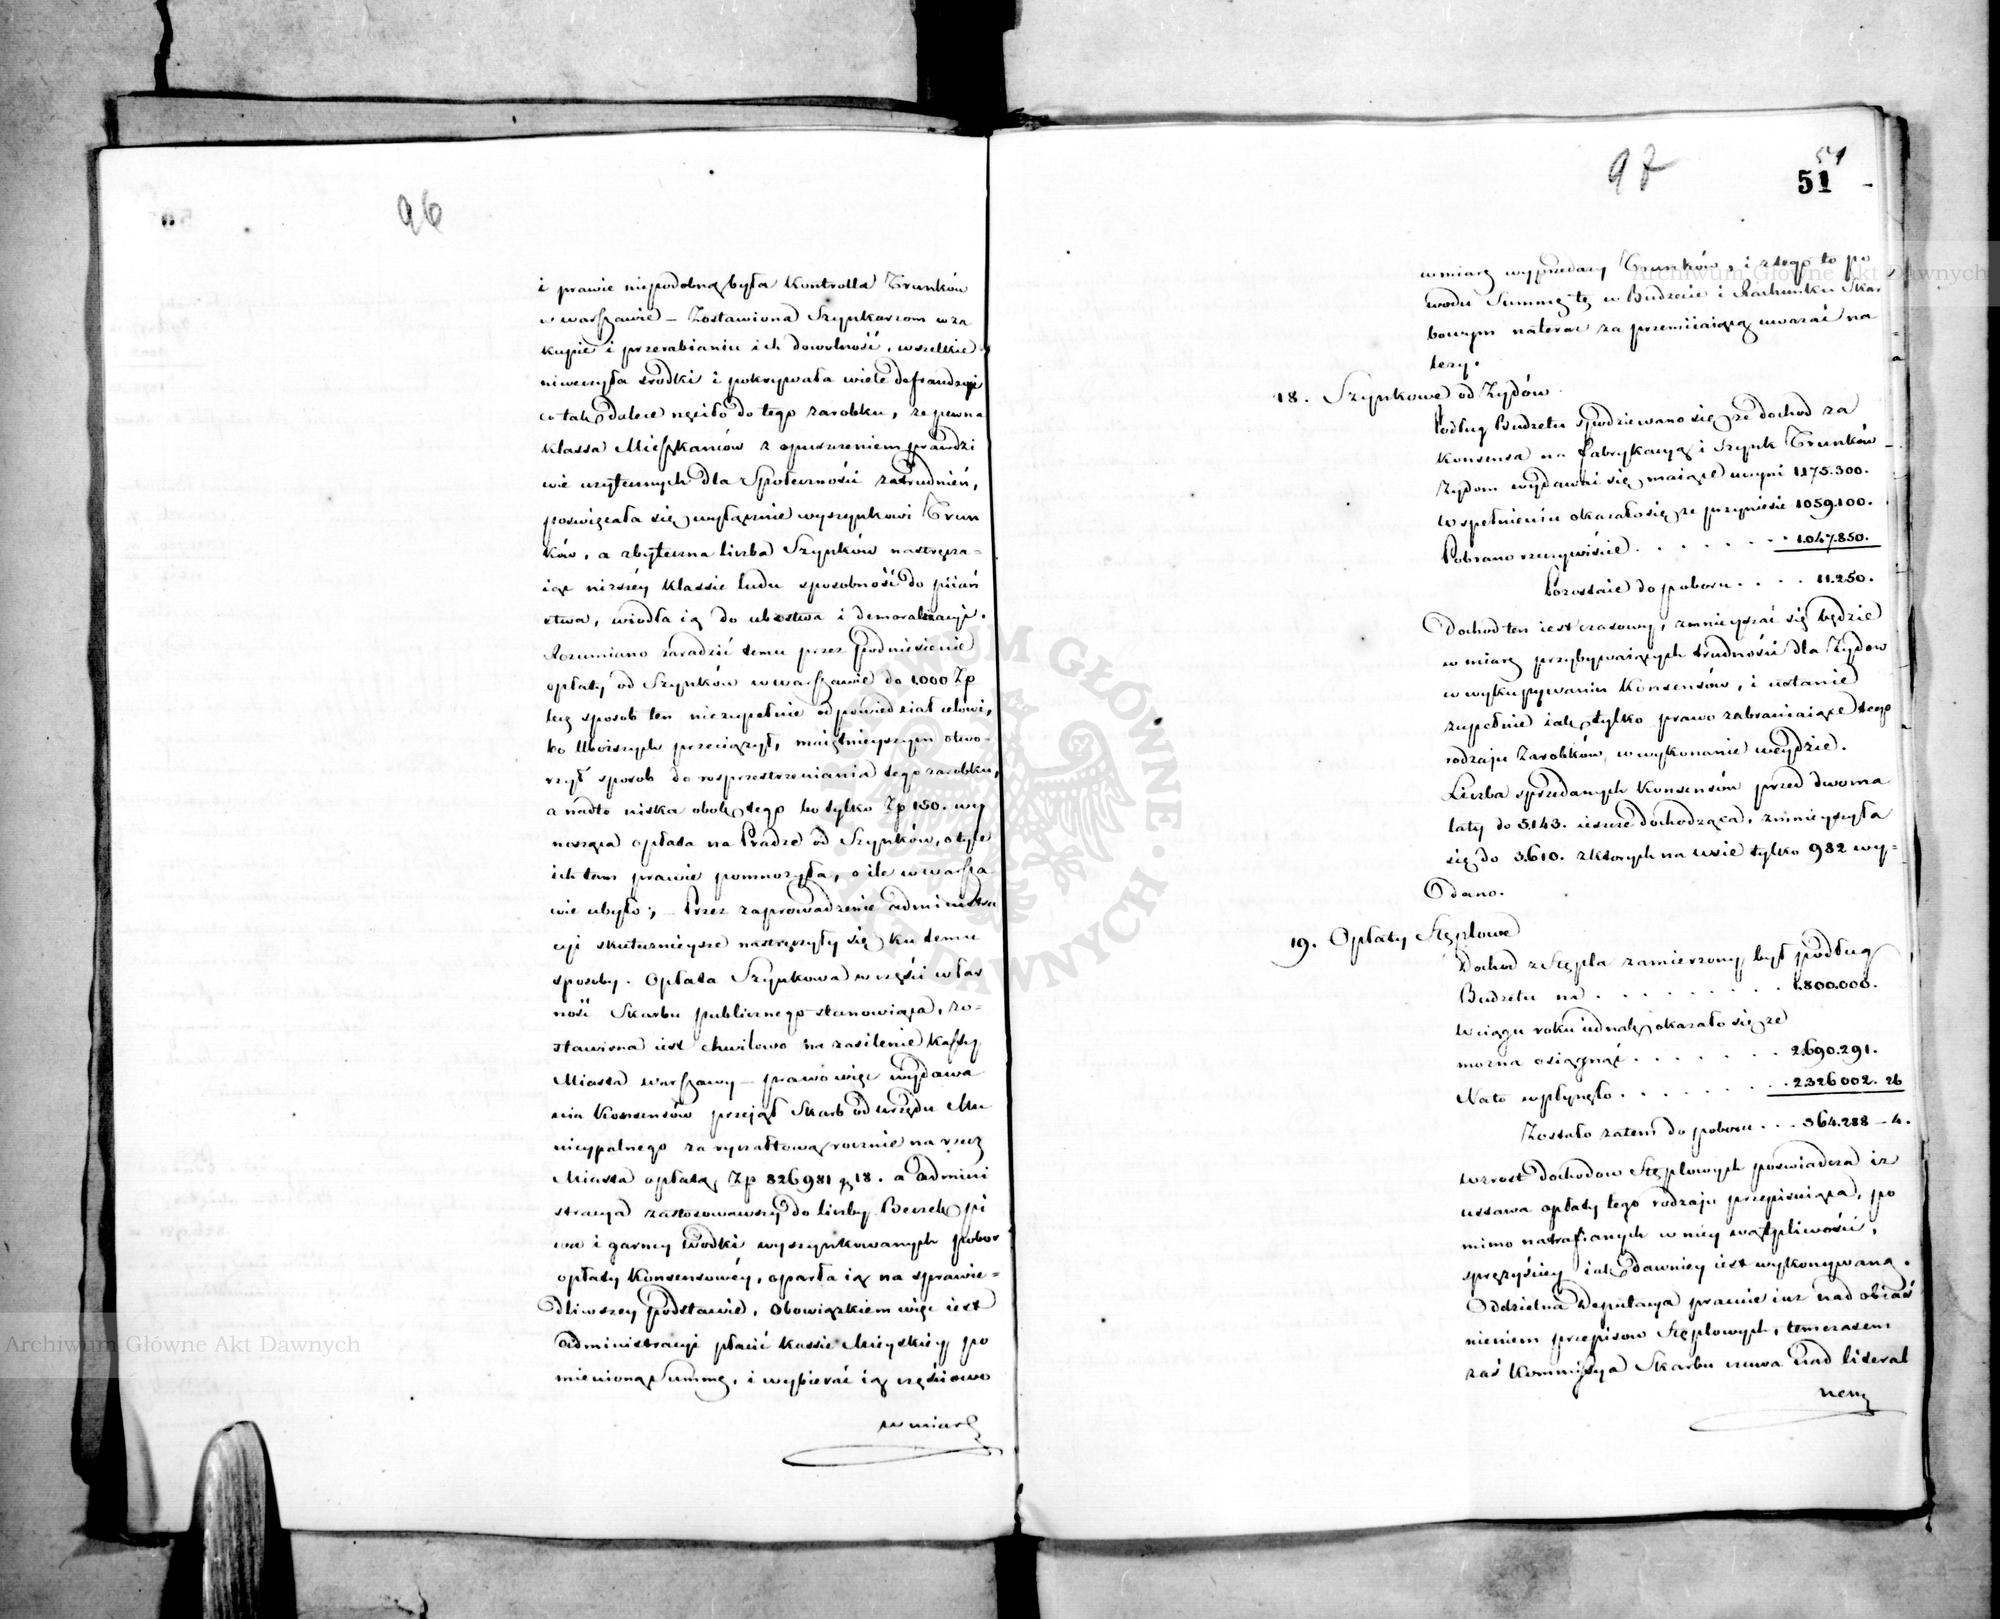 96
i prawie niepodobną była Kontrolla Trunków
w warszawie – Zostawiona Szynkarzom w za
kupie i przerabianiu ich dowolność, wszelkie
niweczyła srodki i pokrywała wiele defraudacyi
co tak dalece nęciło do tego zarobku, ze pewna
klassa Mieszkanców z opuszczeniem prawdzi
wie uzytecznych dla Społeczności zatrudnień,
poswięcała się wyłącznie wyszynkowi Trun
ków, a zbyteczna liczba Szynków nastręcza=
iąc nizszéy klassie ludu sposobność do piiań
stwa, wiodła ią do ubostwa i demoralizacyi.
Rozumiano zaradzić temu przez podniesienie
opłaty od Szynków w warszawie do 1,000 Zp
lecz sposob ten niezupełnie odpowiedział celowi,
bo Uboższych przeciążył, maiętnieyszym otwo-
rzył sposob do rozprzestrzeniania tego zarobku,
a nadto niska obok tego bo tylko Zp 150. wy
nosząca opłata na Pradze od Szynków, o tyle
ich tam prawie pomnozyła, o ile w warsza
wie ubyło; – Przez zaprowadzenie administra
cyi skutecznieysze nastręczyły się ku temu
sposoby. Opłata Szynkowa w części włas
ność Skarbu publicznego stanowiąca, zo-
stawiona iest chwilowo na zasilenie Kassy
Miasta warszawy – prawo więc wydawa
nia Konsensów przejął Skarb od urzędu Mu
nicypalnego za ryczałtową rocznie na rzecz
Miasta opłatą Zp 826981 g 18. a admini
stracya zastosowawszy do liczby Beczek pi
wa i garncy wodki wyszynkowanych pobor
opłaty Konsensowéy, oparła ią na sprawie=
dliwszey podstawie, Obowiązkiem więc iest
administracyi płacić Kassie Mieyskiéy po
mienioną Summę, i wybierać ią częściowo
w miarę
97
51
51
w miarę wyprzedazy Trunków, i z tego to po
wodu Summę tę w Budzecie i Rachunku Skar
bowym nateraz za przemiiaiącą uwazać na
lezy.
18. Szynkowe od Zydów
Podług Budzetu spodziewano się ze dochod za
Konsensa na fabrykacyą i Szynk Trunków
Zydom wydawai się maiące uczyni 1175.300.
W spełnieniu okazało się ze przyniesie 1059.100.
Pobrano rzeczywiście . . . . . . . . 1.047.850.
Pozostaie do poboru . . . . 11.250.
Dochod ten iest czasowy, zmnieyszać się będzie
w miarę przybywaiących trudności dla Zydow
w wykupywaniu Konsensów, i ustanie
zupełnie iak tylko prawo zabraniaiące tego
rodzaju Zarobków, w wykonanie weydzie.
Liczba sprzedanych Konsensów przed dwoma
laty do 5.143. ieszcze dochodząca, zmnieyszyła
się do 3.610. z ktorych na wsie tylko 982 wy=
dano.
19. Opłaty Stęplowe
Dochod z Stępla zamierzony był podług
Budzetu na . . . . . . . . . 1.800.000.
W ciągu roku iednak okazało się ze
mozna osiągnąć . . . . . . . 2.690.291.
Na to wpłynęło . . . . . . . . 2.326002. 26
Zostało zatem do poboru . . . 364.288 – 4.
Wzrost dochodow Stęplowych poswiadcza iz
ustawa opłaty tego rodzaju przepisuiąca, po
mimo natrafianych w niey wątpliwości,
spręzyściey iak dawniey iest wykonywaną.
Oddzielna Deputacya pracuie iuz nad obiaś
nieniem przepisow Stęplowych, temczasem
zaś Kommissya Skarbu czuwa nad liberal
nem
Archiwum Główne Akt Dawnych
Archiwum Główne Akt Dawnych
ARCHIWUM GŁÓWNE AKT DAWNYCH